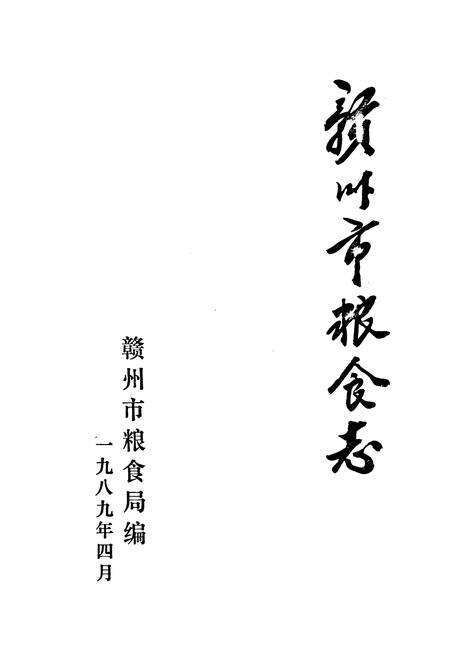 赣州市粮食志
赣州市粮食局编
一九八九年四月